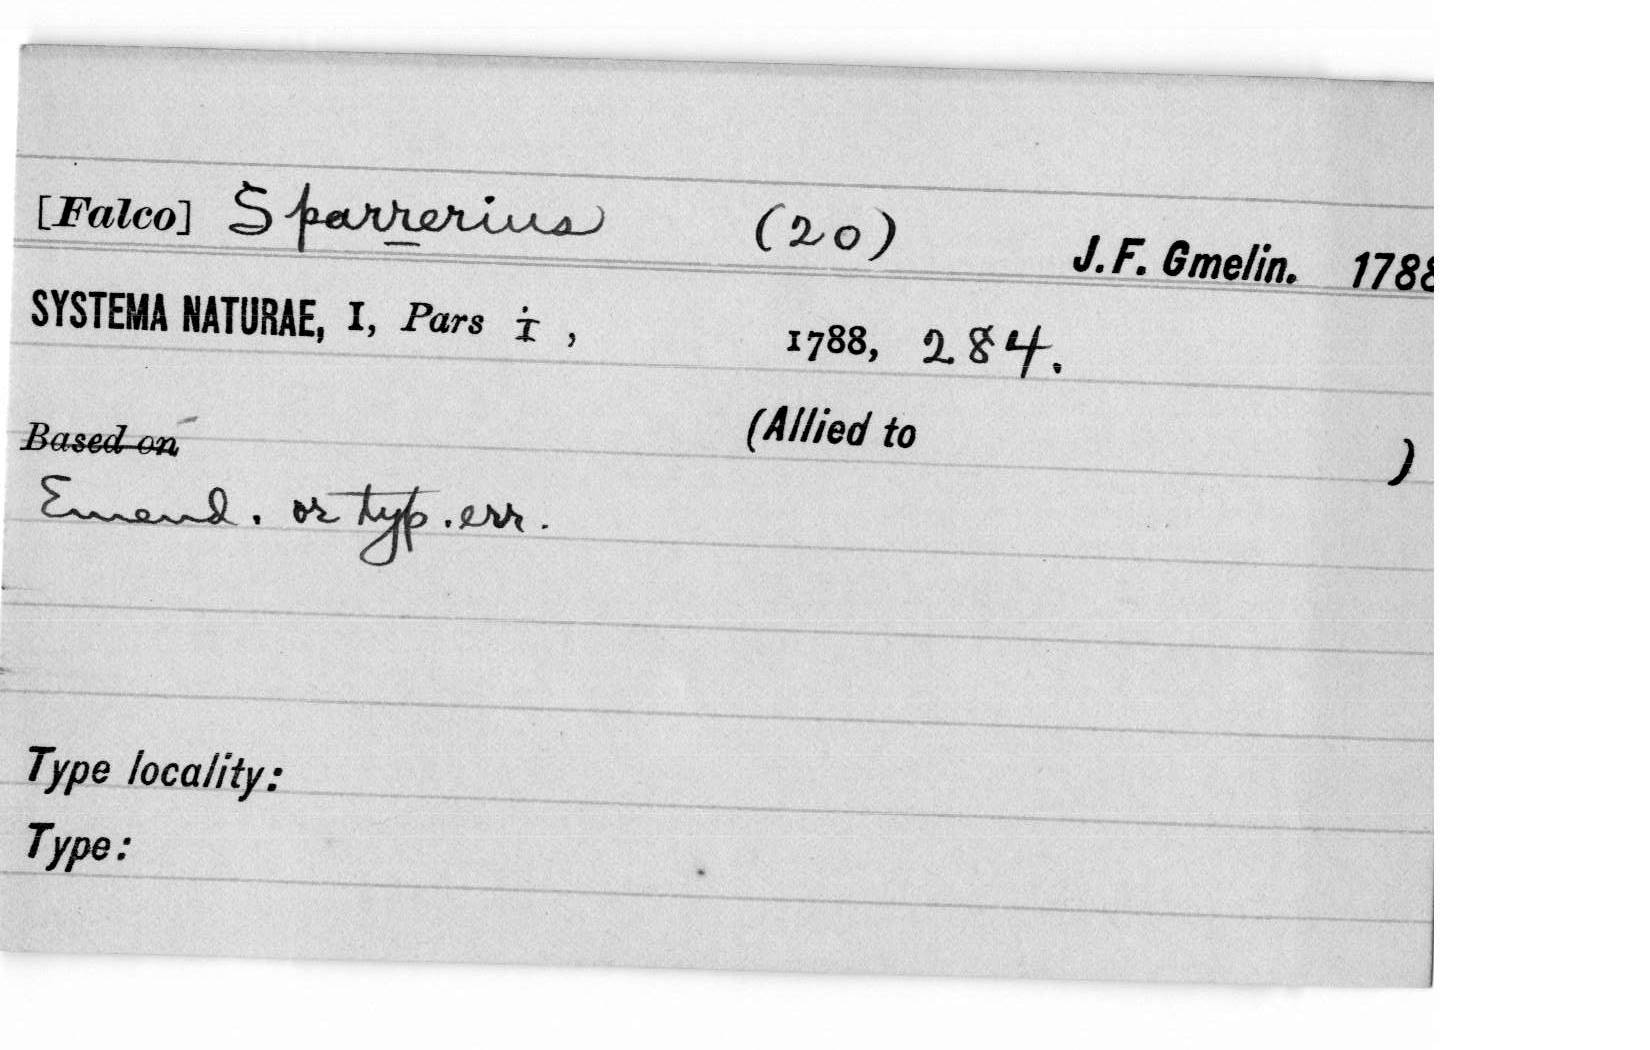 [Falco] Sparrerius (20) J. F. Gmelin. 1788
SYSTEMA NATURAE, I, Pars i, 1788, 284.
Based on (Allied to )
Emend. or typ. err.
Type locality:
Type: